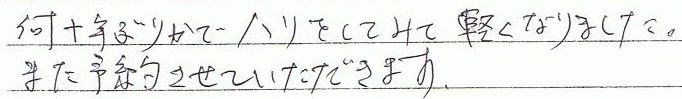 何十年ぶりかでハリをしてみて軽くなりました。
また予約させていただきます。